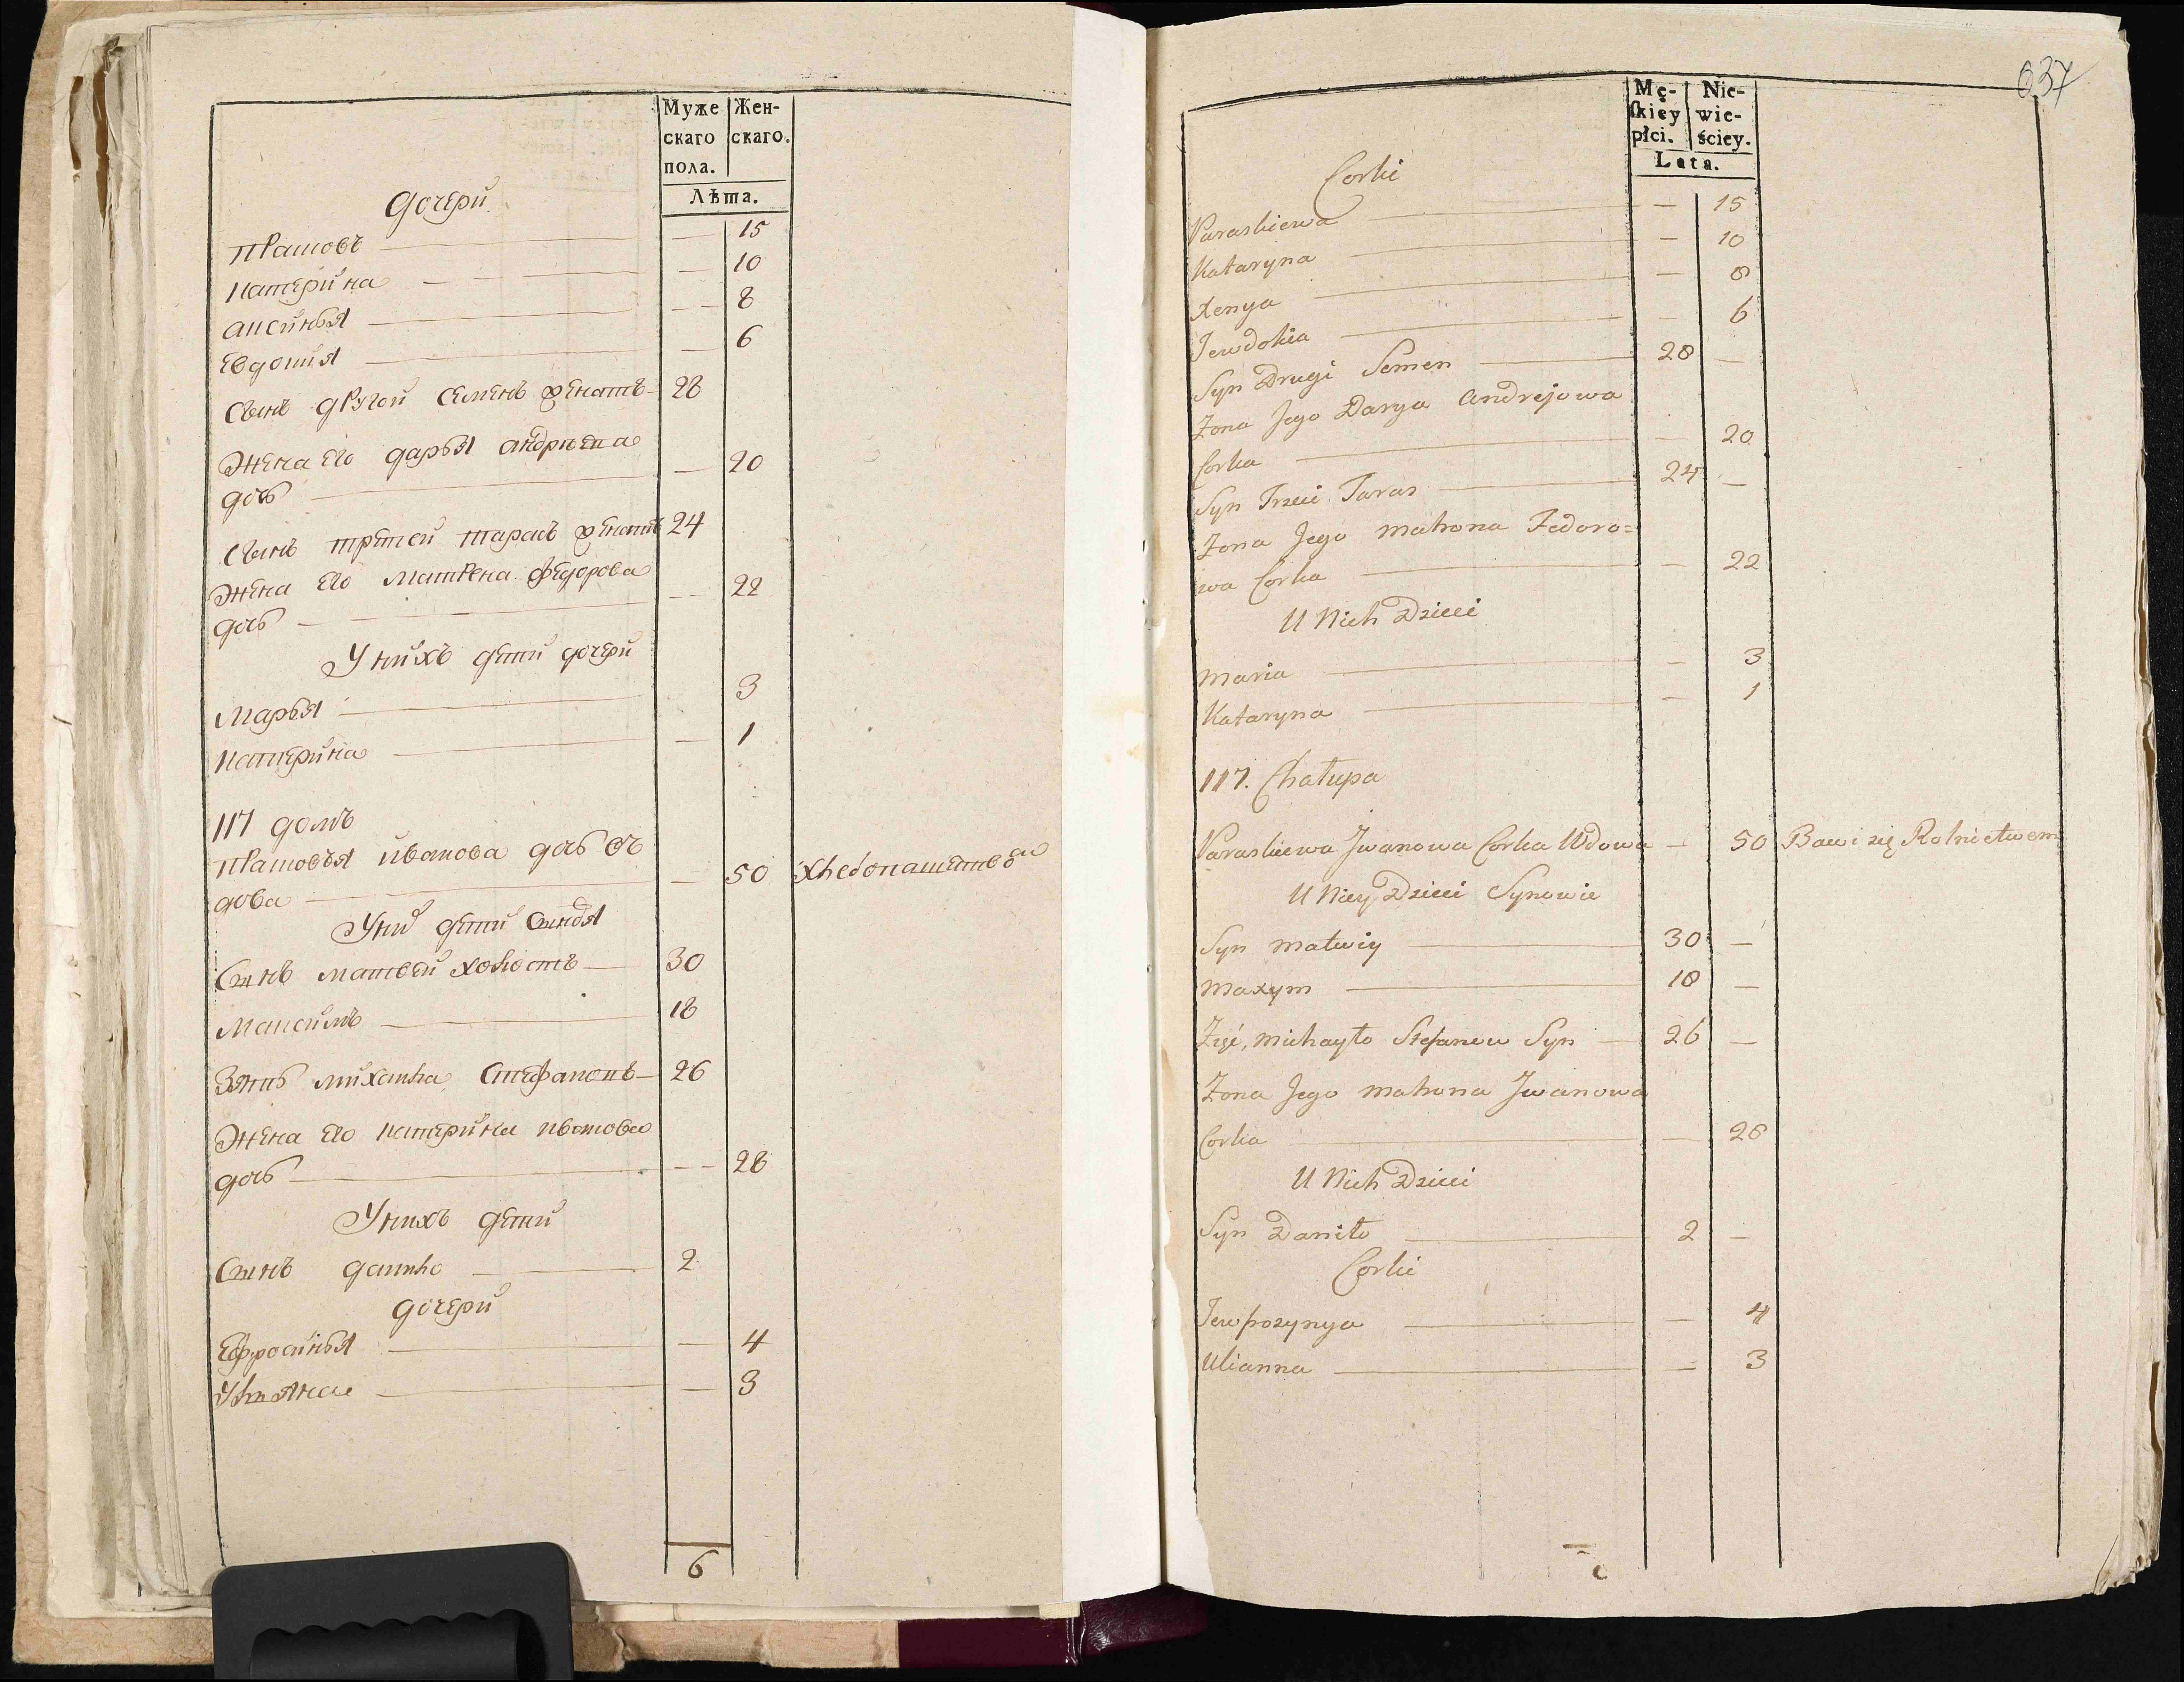 Муже Жен-
скаго скаго.
пола.
Лѣта.
дочери
15
катерина — 10
аксинья — 8
евдокия — 6
сынъ другой семенъ женатъ 28
жена его дарья андрѣева
дочь — 20
сынъ третей тарасъ женатъ 24
жена его матрена федорова
дочь — 22
У нихъ дети дочери
Марья — 3
катерина — 1
117 домъ
ивановa дочь въ
дова — 50
дети сыновя
Сынъ матвей холостъ — 30
Максимъ — 18
Зять михаила — 26
Жена его катерина иванова
дочь — 28
У нихъ дети
Сынъ данило — 2
дочери
Ефросинья — 4
Ульяна — 3
6
637
Mę- Nie-
ſkiey wie-
płci. ściey.
Lata.
Corki
Paraskiewa — 15
Kataryna — 10
Xenya — 8
Jewdokia — 6
Syn Drugi Semen — 28 —
Zona Jego Darya Andrejowa
Corka — 20
Syn Trzeci Taras — 24 —
Zona Jego Matrona Fedoro=
wa Corka — 22
U Nich Dzieci
Maria — 3
Kataryna — 1
117. Chałupa
Paraskiewa Jwanowa Corka Wdowa — 50 Bawi się Rolnictwem
U Niey Dzieci Synowie
Syn Matwiy — 30 —
Maxym — 18 —
Zięć, Michayło Stefanow Syn — 26 —
Zona Jego Matrona Jwanowa
Corka — 28
U Nich Dzieci
Syn Daniło — 2 —
Corki
Jewfrozynya — 4
Ulianna — 3